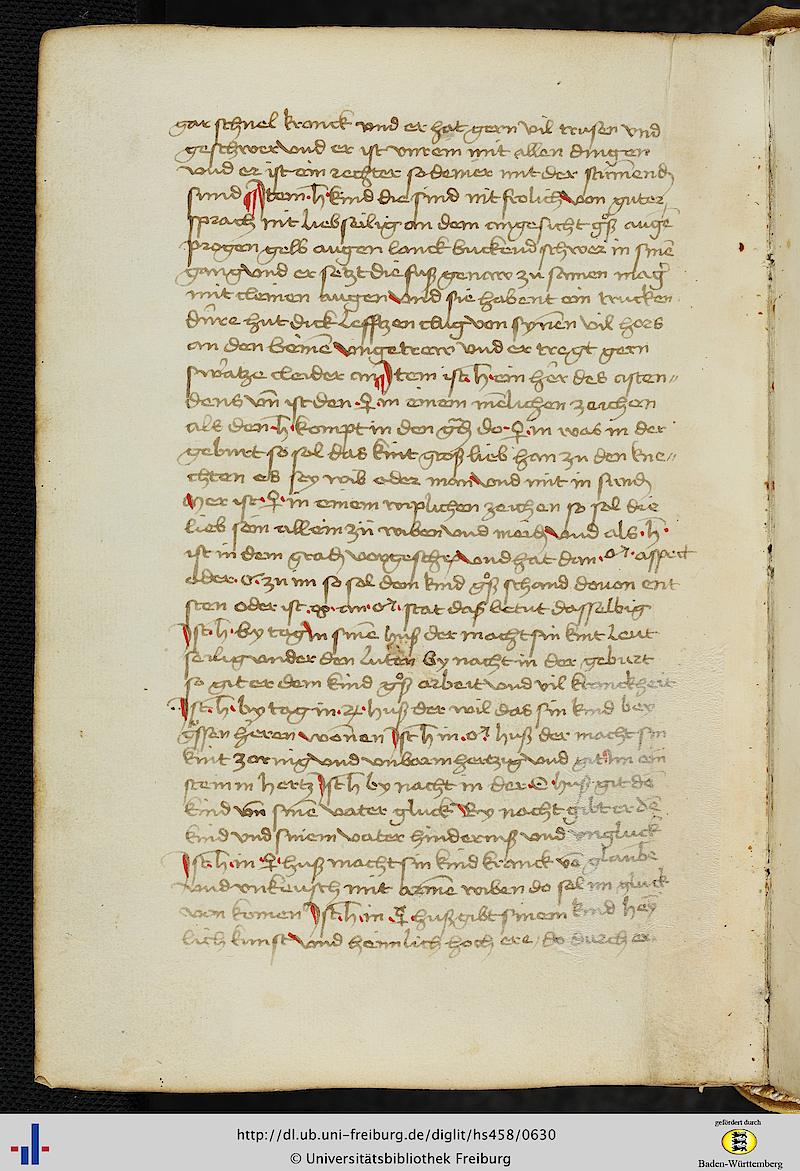 gar schnel kranck vnd er hat gern vil trusen vnd
geschwer vnd er ist vnrein mit allen dingen
vnd er ist ein rechter sodemer mit der stumend
sund Item ♄ kind die sind nit frolich von guter
sprach nit liebseilig an dem angesicht gͦß augē
progen gelb augen lanck buckend schwer in sinē
gang vnd er setzt die fuß genaw zu samen mag͛
mit cleinen augen vnd sie habent ein trucken
dure hut dick lefftzen clug von synnen vil hors
an den beinē vngetrew vnd er tregt gern
swartze cleider an Item ist ♄ ein her des asten〃
dens vn̄ ist den ♀ in einem menlichen zeichen
als den ♄ kompt in den gd do ♀ in was in der
geburt so sol das kint groß lieb han zu den kne〃
chten es sey wib oder man vnd mit in sund
Wer ist ♀ in einem wiplichen zeichen so sol die
lieb sein allein zu wiben vnd meid vnd als ♄
ist in dem grad vorgeschr vnd hat dan ♂ aspect
oder ☌ zu im so sol dem kind gͦß schand dovon ent
sten oder ist ☍ an ♂ stat daß betut dasselbig
Ist ♄ by tag in sinē huß der macht sin kint leut
seilig vnder den luten By nacht in der geburt
so git er dem kind gͦß arbeit vnd vil kranckheit
Ist ♄ by tag in ♃ huß der wil das sin kind bey
gͦssen heren wonen Ist ♄ in ♂ huß der macht sin
kint zornig vnd vnbarmhertzig vnd git im ein
steinin hertz Ist ♄ by nacht in der ☉ huß git dē
kind vn̄ sinē vater gluck By nacht gibt er dē
kind vnd sinem vater hinderniß vnd vngluck
Ist ♄ in ♀ huß macht sin kind kranck vō glaube
vnd vnkeusch mit armē wiben do sol im gluck
von komen Ist ♄ in ☿ huß gibt sinem kind hey
lich kunst vnd heimlich hoch ere do durch er
http://dl.ub.uni-freiburg.de/diglit/hs458/0630
© Universitätsbibliothek Freiburg
gefördert durch
Baden-Württemberg